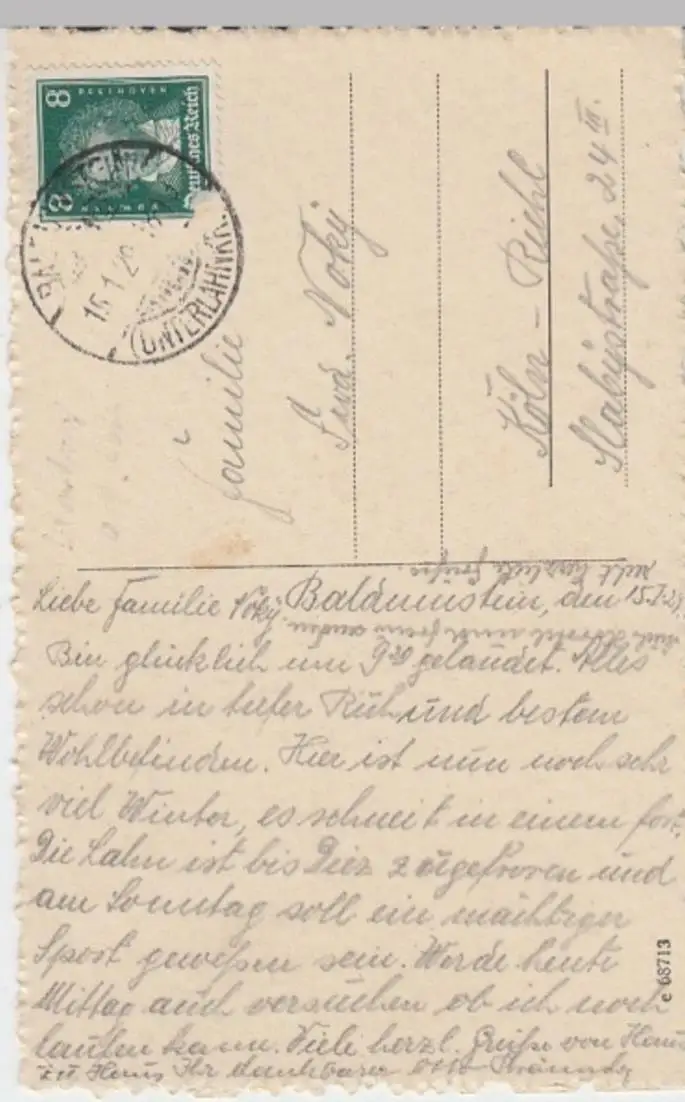 8 BEETHOVEN 8
Deutsches Reich
15.1.29
(UNTERLAHNKR.)
Familie
Ferd. Noky
Köln - Riehl
Slabystraße, 24 III.
recht herzliche Grüße.
Liebe Familie Noky! Balduinstein, den 15.I.29.
Bin glücklich um 9 20 gelandet. Alles
schon in tiefer Ruh und bestem
Wohlbefinden. Hier ist nun noch sehr
viel Winter, es schneit in einem fort.
Die Lahn ist bis Diez zugefroren und
am Sonntag soll ein mächtiger
Sport gewesen sein. Werde heute
Mittag auch versuchen ob ich noch
laufen kann. Viele herzl. Grüße von Haus
zu Haus Ihr dankbarer Otto
e 68713